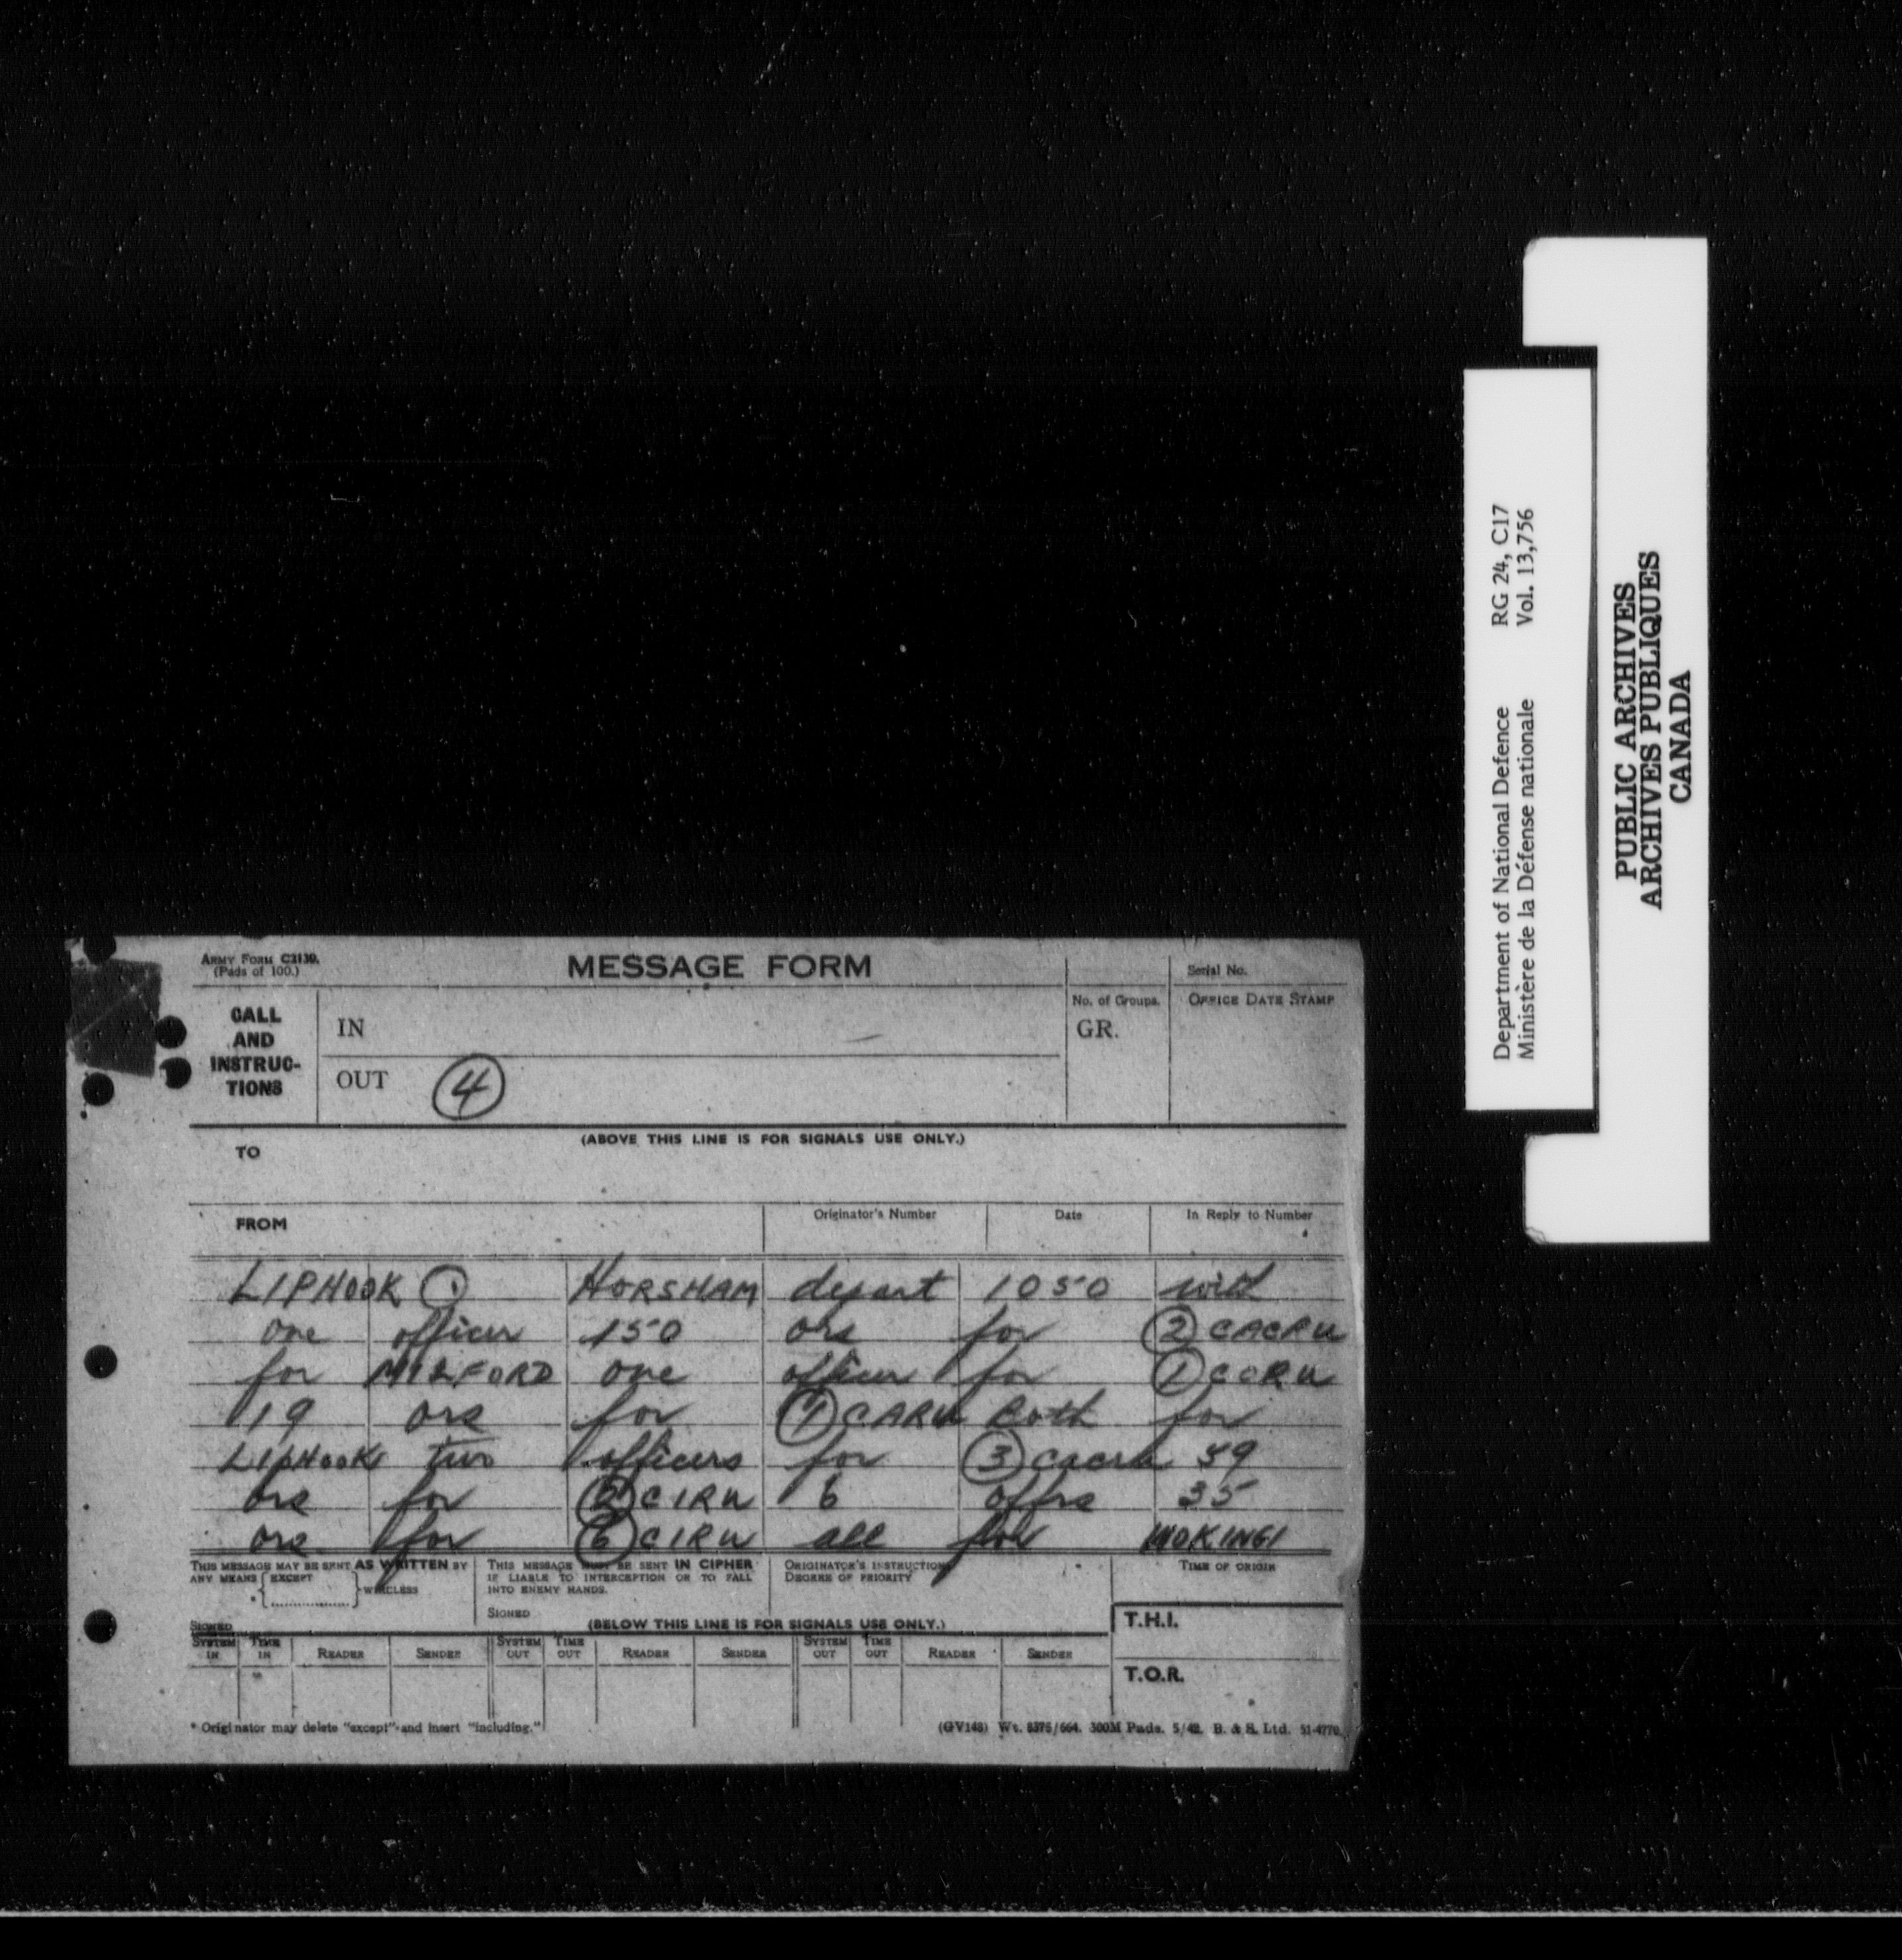 ARMY FORM C2130.
(Pads of 100.)
MESSAGE FORM
Serial No.
CALL
AND
INSTRUC-
TIONS
IN
No. of Groups.
GR.
OFFICE DATE STAMP
OUT ④
(ABOVE THIS LINE IS FOR SIGNALS USE ONLY.)
TO
FROM
Originator's Number
Date
In Reply to Number
LIPHOOK HORSHAM depart 1050 with
one officer 150 ors for ② CACRU
for MILFORD one officer for ① CCRU
19 ors for ① CARU Both for
LIPHOOK two officers for ③ cacru 59
ors for ② CIRU 6 offrs 35
ors for ⑥ CIRU all for WOKING
THIS MESSAGE MAY BE SENT AS WRITTEN BY
ANY MEANS { EXCEPT
* { .................. } WIRELESS
SIGNED
THIS MESSAGE MUST BE SENT IN CIPHER
IF LIABLE TO INTERCEPTION OR TO FALL
INTO ENEMY HANDS.
SIGNED
ORIGINATOR'S INSTRUCTIONS
DEGREE OF PRIORITY
TIME OF ORIGIN
(BELOW THIS LINE IS FOR SIGNALS USE ONLY.)
T.H.I.
SYSTEM IN TIME IN READER SENDER SYSTEM OUT TIME OUT READER SENDER SYSTEM OUT TIME OUT READER SENDER
T.O.R.
* Originator may delete "except" and insert "including."
(GV148) Wt. 8375/664. 300M Pads. 5/42. B. & S. Ltd. 51-4770.
Department of National Defence RG 24, C17
Ministère de la Défense nationale Vol. 13,756
PUBLIC ARCHIVES
ARCHIVES PUBLIQUES
CANADA